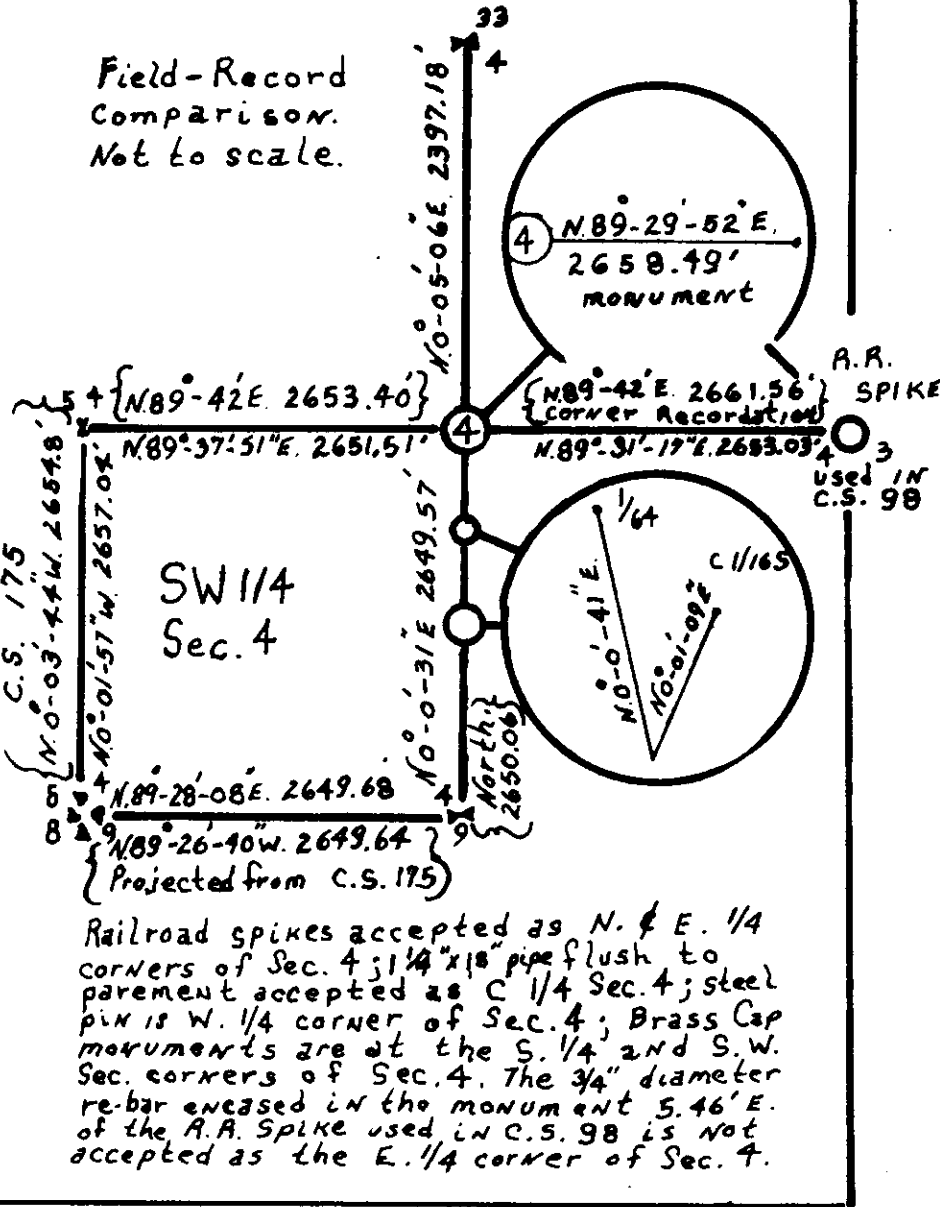 33
4
Field-Record
Comparison.
Not to scale.
N.0°-05'-06"E. 2397.18'
4
N.89°-29'-52"E.
2658.49'
monument
R.R.
SPIKE
5 4 {N.89°-42'E. 2653.40'}
N.89°-37'-51"E. 2651.51'
4
{N.89°-42'E. 2661.56'}
{Corner Recordation}
N.89°-31'-17"E. 2653.03'
4 3
used IN
C.S. 98
C.S. 175
{N.0°-03'-44"W. 2654.8'}
N.0°-01'-57"W. 2657.04'
SW 1/4
Sec. 4
N.0°-0'-31"E 2649.57'
1/64
C 1/16S
N.0°-0'-41"E.
N.0°-01'-09"E
{North. 2650.06}
5 4
8 9
N.89°-28'-08"E. 2649.68
4
9
{N.89°-26'-40"W. 2649.64}
{Projected from C.S. 175}
Railroad spikes accepted as N. & E. 1/4
corners of Sec. 4; 1 1/4"x18" pipe flush to
pavement accepted as C 1/4 Sec. 4; steel
pin is W. 1/4 corner of Sec. 4; Brass Cap
monuments are at the S. 1/4 and S.W.
Sec. corners of Sec. 4. The 3/4" diameter
re-bar encased in the monument 5.46' E.
of the R.R. Spike used in C.S. 98 is not
accepted as the E. 1/4 corner of Sec. 4.